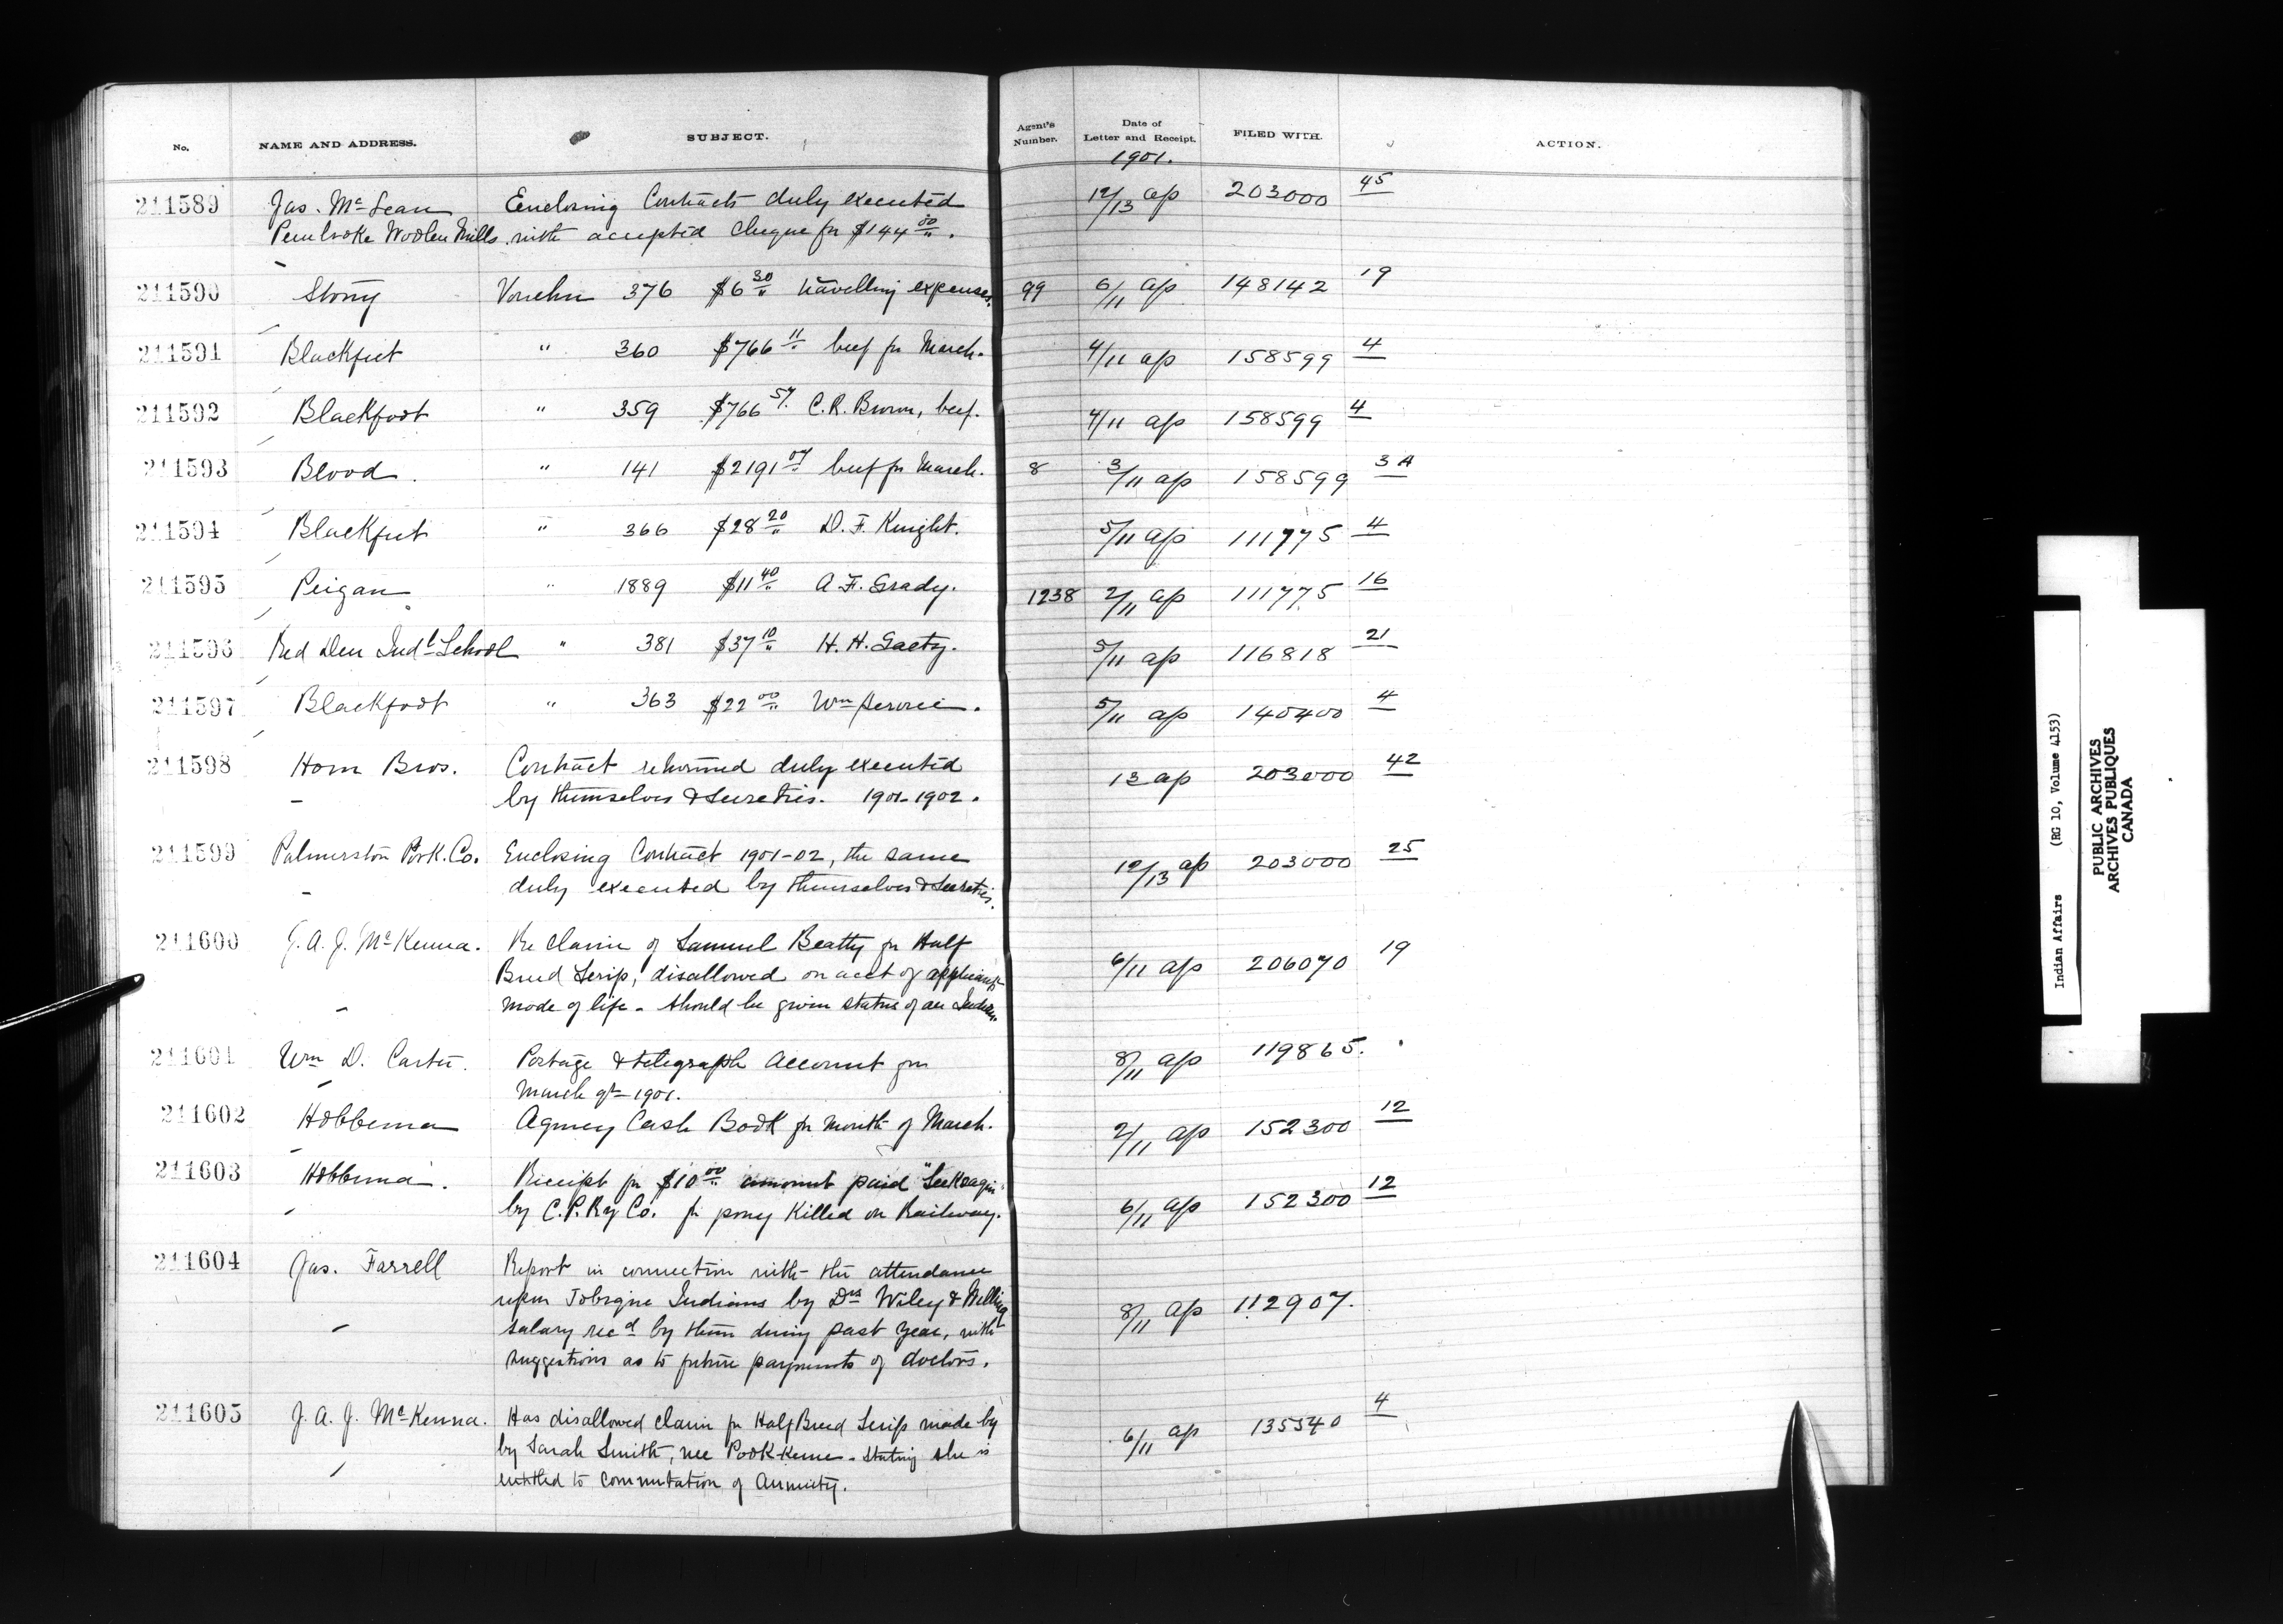 No. NAME AND ADDRESS. SUBJECT. Agent's Number. Date of Letter and Receipt. FILED WITH. ACTION.
1901.
211589 Jas. McLean Enclosing Contracts duly executed 12/13 ap 203000 45
Pembroke Woolen Mills. with accepted cheque for $144 00/".
211590 Stony Voucher 376 $6 30/" travelling expenses. 99 6/11 ap 148142 19
211591 Blackfeet " 360 $766 11/" beef for March. 4/11 ap 158599 4
211592 Blackfoot " 359 $766 57. C. R. Brown, beef. 4/11 ap 158599 4
211593 Blood. " 141 $2191 07/" beef for March. 8 3/11 ap 158599 3A
211594 Blackfeet " 366 $28 20/" D. F. Knight. 5/11 ap 111775 4
211595 Peigan " 1889 $11 40/" A. F. Grady. 1238 2/11 ap 111775 16
211596 Red Deer Indl School " 381 $37 10/" H. H. Gaetz. 5/11 ap 116818 21
211597 Blackfoot " 363 $22 00/" Wm 5/11 ap 140400 4
211598 Horn Bros. Contract returned duly executed 13 ap 203000 42
by themselves & Sureties. 1901-1902.
211599 Palmerston Pork. Co. Enclosing Contract 1901-02, the same 12/13 ap 203000 25
duly executed by themselves & Sureties.
211600 J. A. J. McKenna. Re claim of Samuel Beatty for Half 6/11 ap 206070 19
Breed Scrip, disallowed on acct of applicant's
mode of life - should be given status of an Indian.
211601 Wm D. Carter. Postage & telegraph Account for 8/11 ap 119865.
March qr 1901.
211602 Hobbema Agency Cash Book for month of March. 2/11 ap 152300 12
211603 Hobbema. Receipt for $10 00/" amount paid 6/11 ap 152300 12
by C.P.Ry Co. for pony killed on Railway.
211604 Jas. Farrell Report in connection with the attendance 8/11 ap 112907.
upon Tobique Indians by Drs Wiley & Welling
salary recd by them during past year, with
suggestions as to future payments of doctors.
211605 J. A. J. McKenna. Has disallowed claim for Half Breed Scrip made by 6/11 ap 135540 4
by Sarah Smith, nee - stating she is
entitled to commutation of Annuity.
Indian Affairs (RG 10, Volume 4153)
PUBLIC ARCHIVES
ARCHIVES PUBLIQUES
CANADA